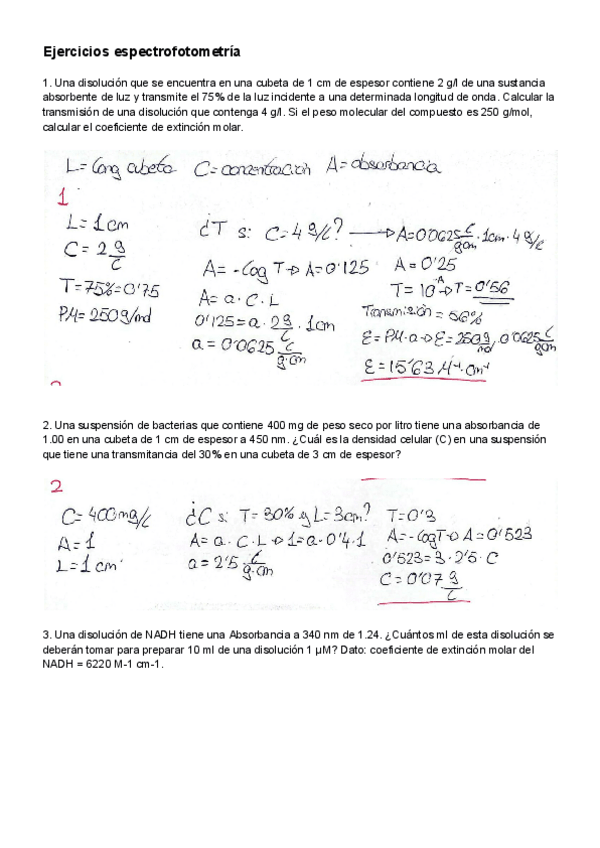 Ejercicios espectrofotometría
1. Una disolución que se encuentra en una cubeta de 1 cm de espesor contiene 2 g/l de una sustancia
absorbente de luz y transmite el 75% de la luz incidente a una determinada longitud de onda. Calcular la
transmisión de una disolución que contenga 4 g/l. Si el peso molecular del compuesto es 250 g/mol,
calcular el coeficiente de extinción molar.
L= Long cubeta C=concentración A= absorbancia
1
L=1cm
C= 2 g/L
T=75%=0'75
PM=250g/mol
¿T si C=4g/L? → A=0'0625 L/g·cm · 1cm · 4 g/L
A= -log T → A=0'125
A= a · C · L
0'125=a · 2g/L · 1cm
a= 0'0625 L/g·cm
A=0'25
T= 10^-A → T=0'56
Transmisión = 56%
ε= PM·a → ε=250g/mol · 0'0625 L/g·cm
ε= 15'63 M⁻¹·cm⁻¹
2. Una suspensión de bacterias que contiene 400 mg de peso seco por litro tiene una absorbancia de
1.00 en una cubeta de 1 cm de espesor a 450 nm. ¿Cuál es la densidad celular (C) en una suspensión
que tiene una transmitancia del 30% en una cubeta de 3 cm de espesor?
2
C=400mg/L
A=1
L=1cm
¿C si T=30% y L=3cm?
A= a · C · L → 1=a·0'4·1
a=2'5 L/g·cm
T=0'3
A=-log T → A=0'523
0'523=3·2'5·C
C=0'07 g/L
3. Una disolución de NADH tiene una Absorbancia a 340 nm de 1.24. ¿Cuántos ml de esta disolución se
deberán tomar para preparar 10 ml de una disolución 1 µM? Dato: coeficiente de extinción molar del
NADH = 6220 M-1 cm-1.